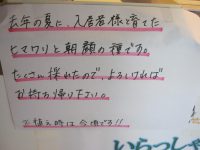 去年の夏に、入居者様と育てた
ヒマワリと朝顔の種です。
たくさん採れたので、よろしければ
お持ち帰り下さい。
※植え時は今頃です!!
いらっしゃ